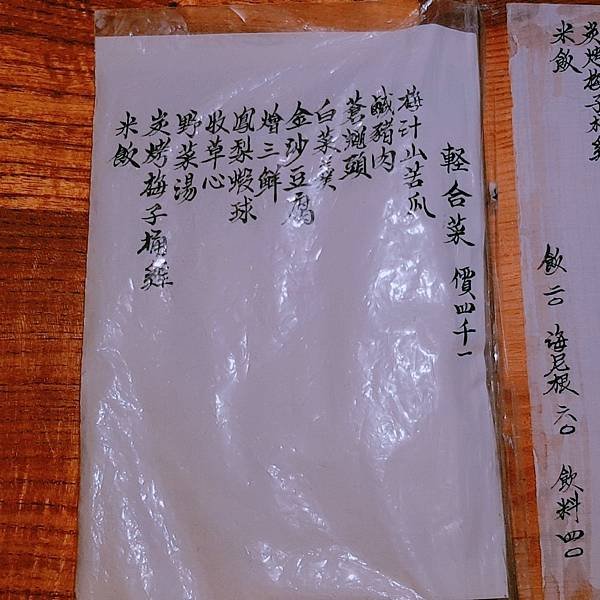 軽合菜 價四千一
梅汁山苦瓜
鹹豬肉
蒼蠅頭
白菜羹
金沙豆腐
燴三鮮
鳳梨蝦球
牧草心
野菜湯
炭烤梅子桶雞
米飯
炭烤梅子桶雞
米飯
飯二〇 海尼根六〇 飲料四〇